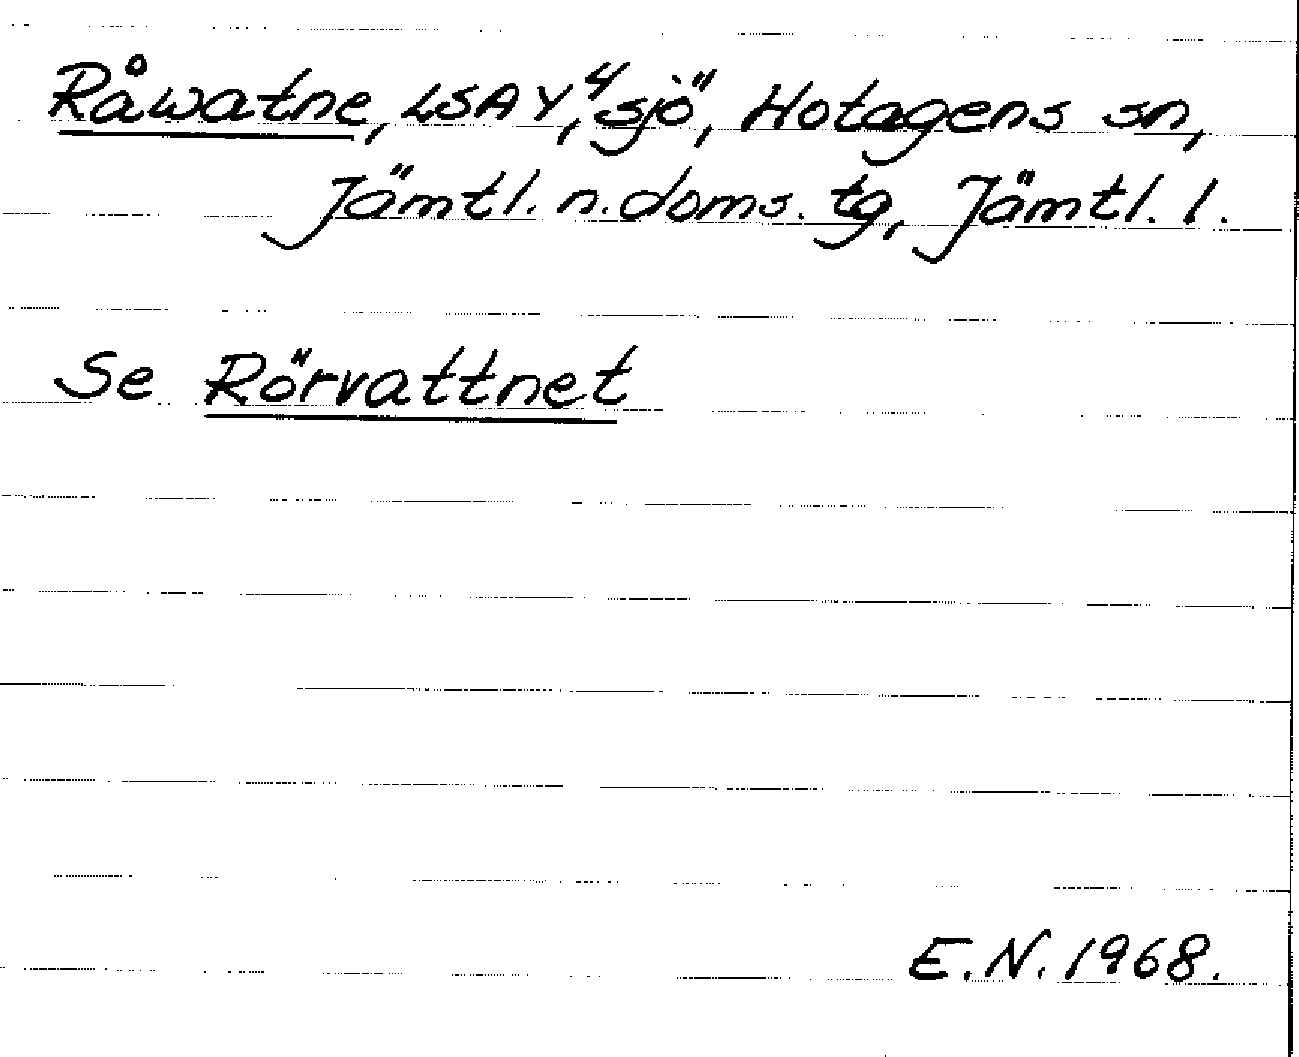 Råwatne, LSAY,4 sjö, Hotagens sn,
Jämtl. n. doms. tg, Jämtl. l.
Se Rörvattnet
E.N. 1968.